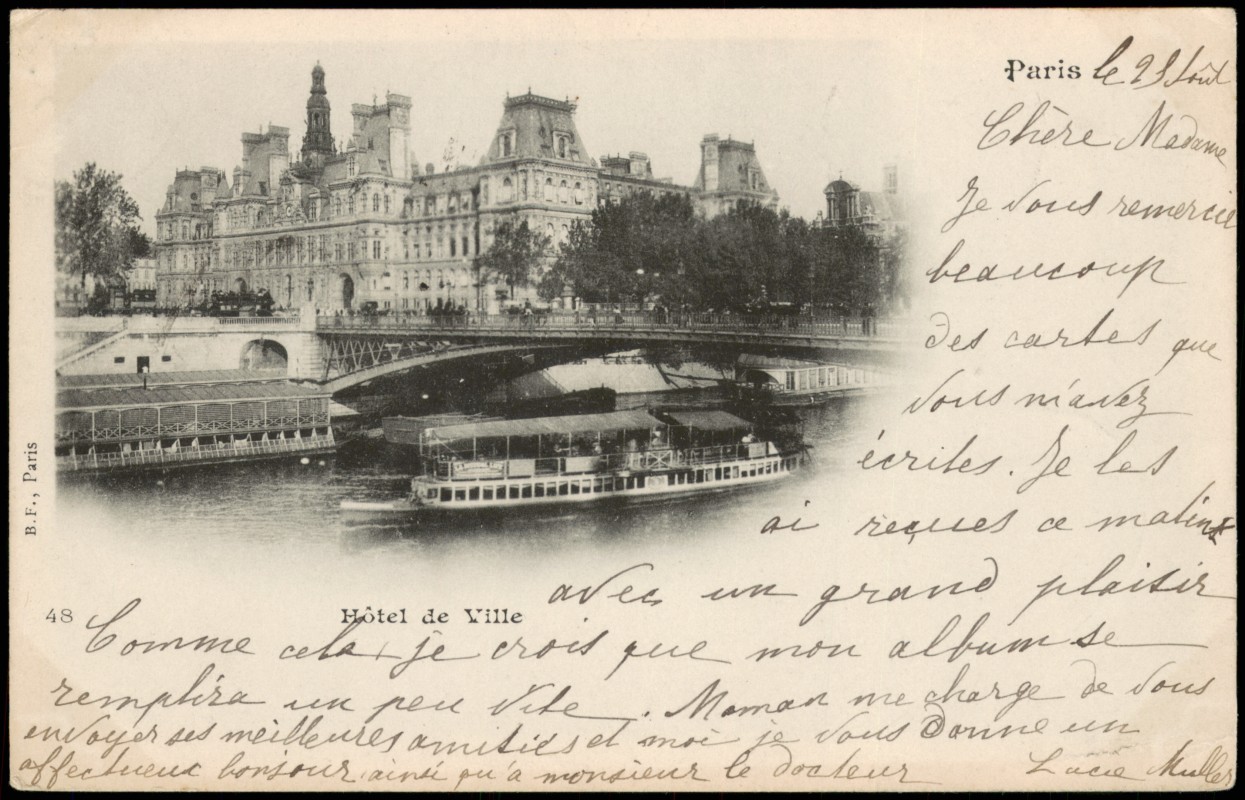 Paris le 23 Août
Chère Madame
Je vous remercie
beaucoup
des cartes que
vous m'avez
écrites. Je les
ai reçues ce matin
avec un grand plaisir
Comme cela, je crois que mon album se
remplira un peu vite. Maman me charge de vous
envoyer ses meilleures amitiés et moi je vous donne un
affectueux bonjour, ainsi qu'à monsieur le docteur
Lucie Muller
48
Hôtel de Ville
B.F., Paris